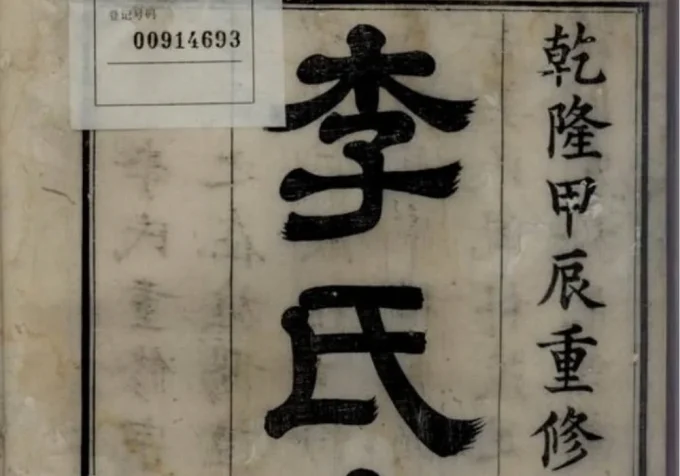 登记号码
00914693
乾隆甲辰重修
李氏